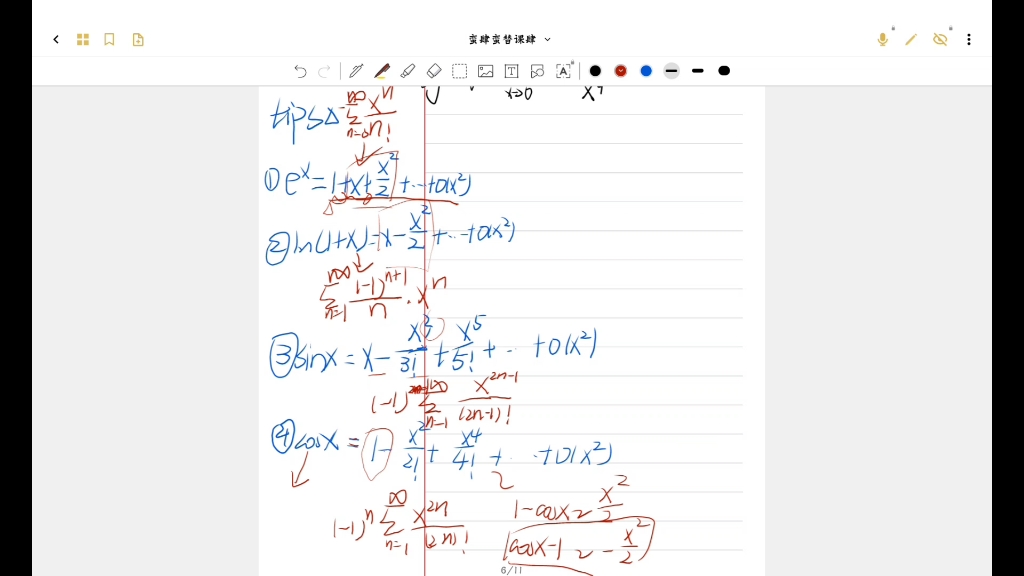 蛮肆蛮替课肆
x→0 x⁴
tips△ ∑_{n=0}^{∞} xⁿ/n!
① eˣ=1+x+x²/2+…+o(x²)
② ln(1+x)=x-x²/2+…+o(x²)
∑_{n=1}^{∞} (-1)ⁿ⁺¹/n · xⁿ
③ sinx=x-x³/3!+x⁵/5!+…+o(x²)
(-1) ∑_{n=1}^{∞} x²ⁿ⁻¹/(2n-1)!
④ cosx=1-x²/2!+x⁴/4!+…+o(x²)
1-cosx~x²/2
(-1)ⁿ ∑_{n=1}^{∞} x²ⁿ/(2n)!
cosx-1~-x²/2
6/11